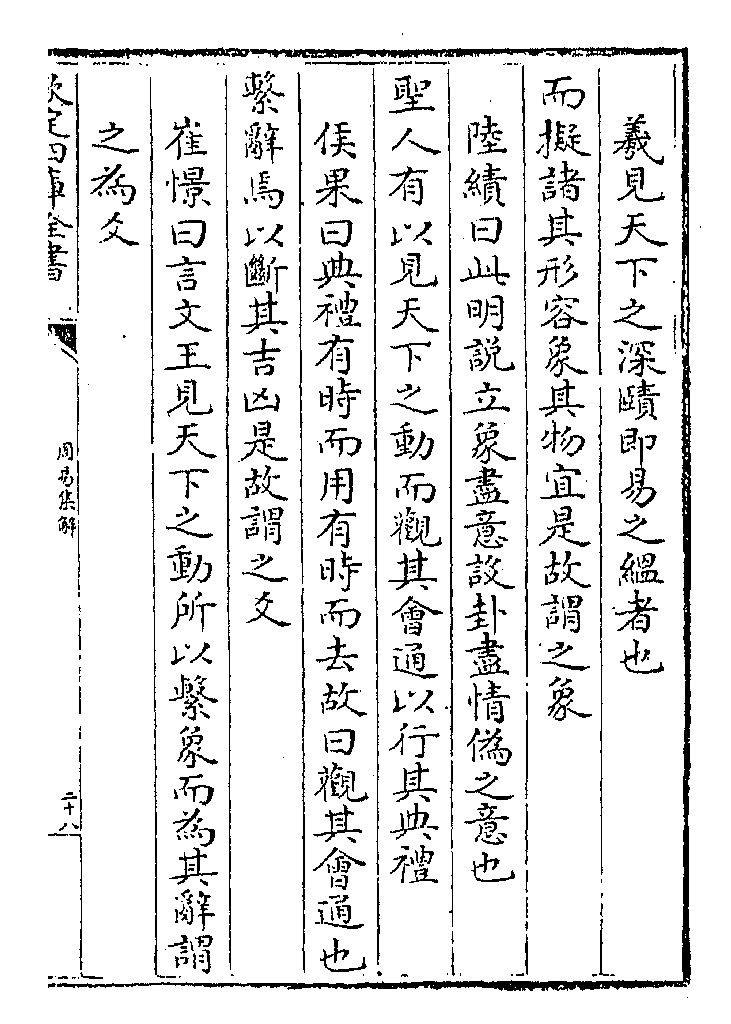 羲見天下之深賾即易之緼者也
而擬諸其形容象其物宜是故謂之象
陸績曰此明説立象盡意設卦盡情僞之意也
聖人有以見天下之動而觀其會通以行其典禮
侯果曰典禮有時而用有時而去故曰觀其會通也
繫辭焉以斷其吉凶是故謂之爻
崔憬曰言文王見天下之動所以繫象而為其辭謂
之為爻
欽定四庫全書
周易集解
二十八